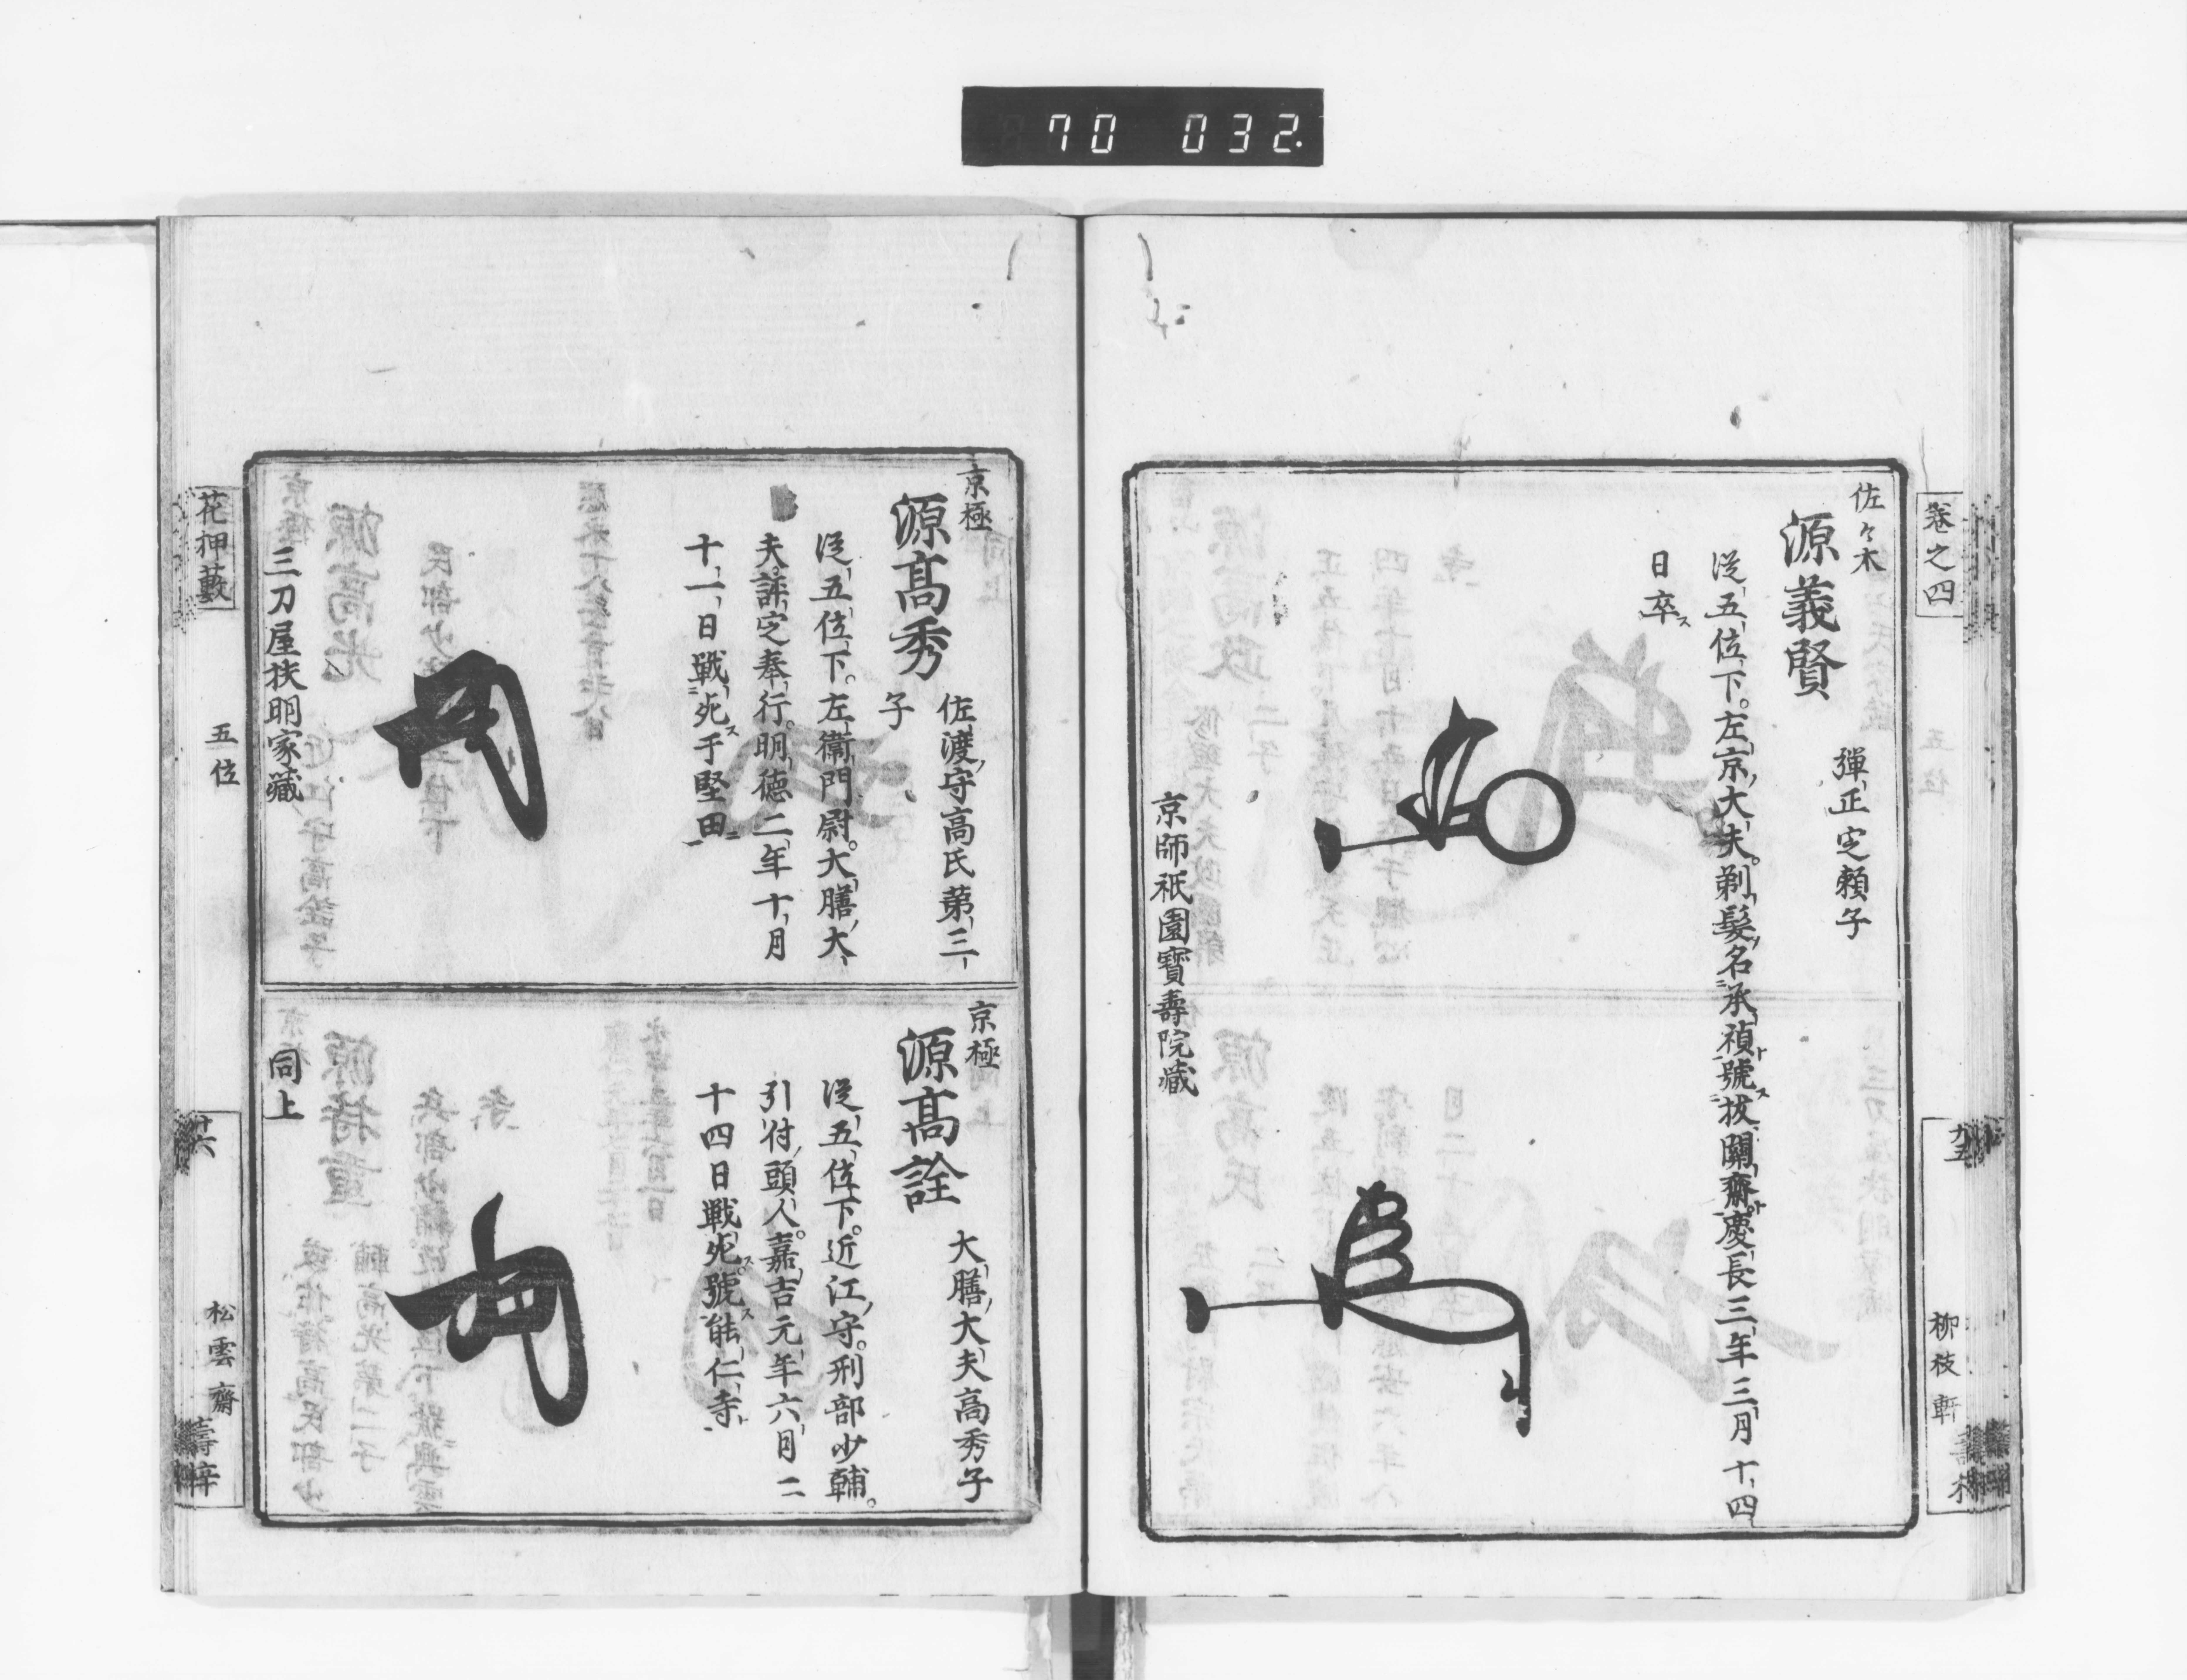 70 032.
卷之四
柳枝軒
佐々木
源義賢
彈正定賴子
從五位下。左京大夫。剃髮名承禎號拔關齋。慶長三年三月十四
日卒ス
京師祇園寶壽院藏
京極
源高秀
佐渡守高氏第三
子
從五位下。左衞門尉。大膳大
夫。評定奉行。明德二年十月
十一日戰死ス于堅田ニ
三刀屋扶明家藏
京極
源高詮
大膳大夫高秀子
從五位下。近江守。刑部少輔。
引付頭人。嘉吉元年六月二
十四日戰死ス。號ス能仁寺ト
同上
花押藪
五位
松雲齋